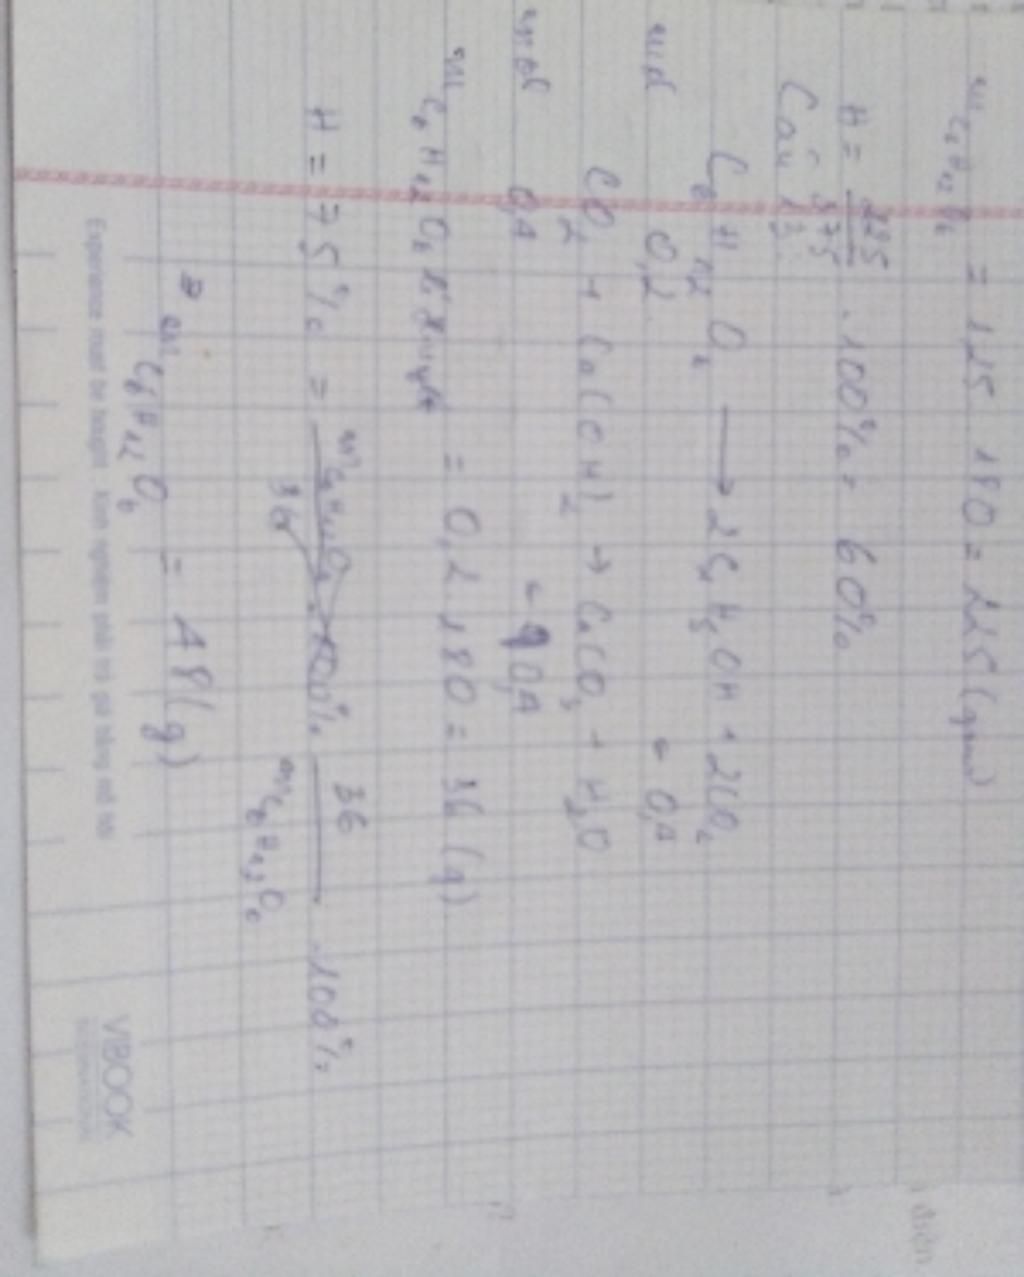 m C6H12O6 = 1,25 . 180 = 225 (gam)
H = 225/375 . 100% = 60%
Câu 13:
C6H12O6 → 2C2H5OH + 2CO2
mol 0,2 ← 0,4
CO2 + Ca(OH)2 → CaCO3 + H2O
mol 0,4 ← 0,4
m C6H12O6 lí thuyết = 0,2 . 180 = 36 (g)
H = 75% = 36/m C6H12O6 . 100%
⇒ m C6H12O6 = 48 (g)
Experience must be bought
VIBOOK